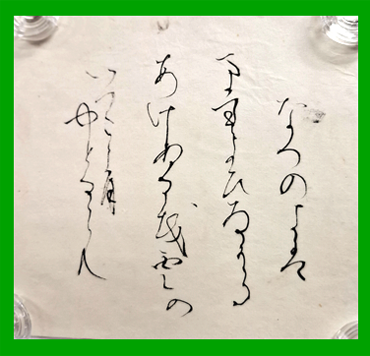 なつのよは
まだよひなから
あけぬるを雲の
いつこに月
やとるらん